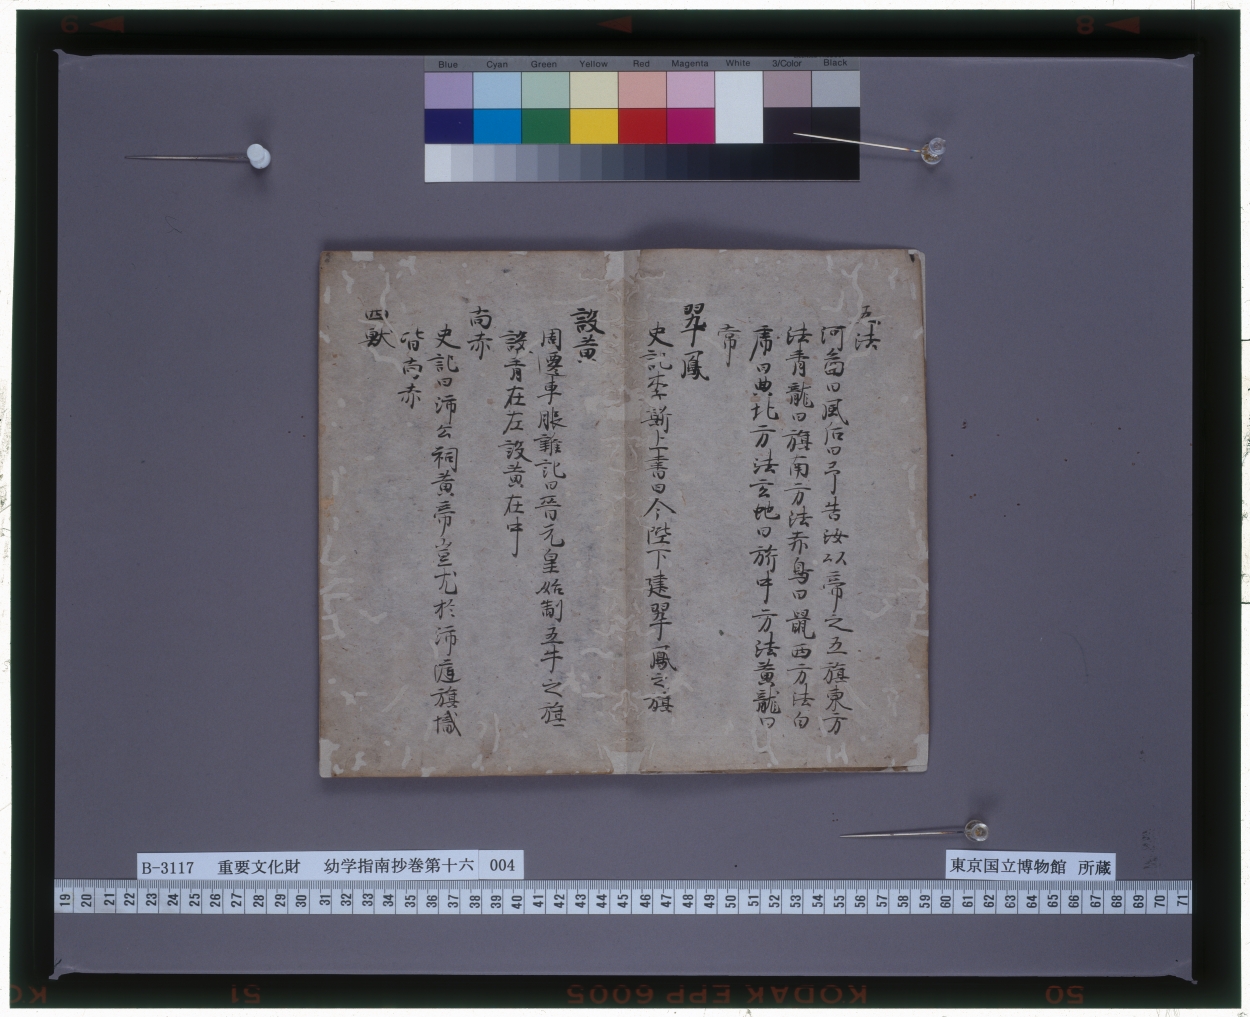 Blue Cyan Green Yellow Red Magenta White 3/Color Black
五法
河啚曰風后曰予告汝以帝之五旗東方
法青龍曰旗南方法赤鳥曰鼰西方法白
席曰典北方法玄地曰旂中方法黃龍曰
常
翠鳳
史記李斯上書曰今陛下建翠鳳之旗
設黃
周遷車服雜記曰晉元皇始制五牛之旗
設青在左設黃在中
尚赤
史記曰沛公祠黃帝蚩尤於沛庭旗幟
皆尚赤
四獸
B-3117 重要文化財 幼学指南抄巻第十六 004
東京国立博物館 所蔵
19 20 21 22 23 24 25 26 27 28 29 30 31 32 33 34 35 36 37 38 39 40 41 42 43 44 45 46 47 48 49 50 51 52 53 54 55 56 57 58 59 60 61 62 63 64 65 66 67 68 69 70 71
KODAK EPP 6005
50
51